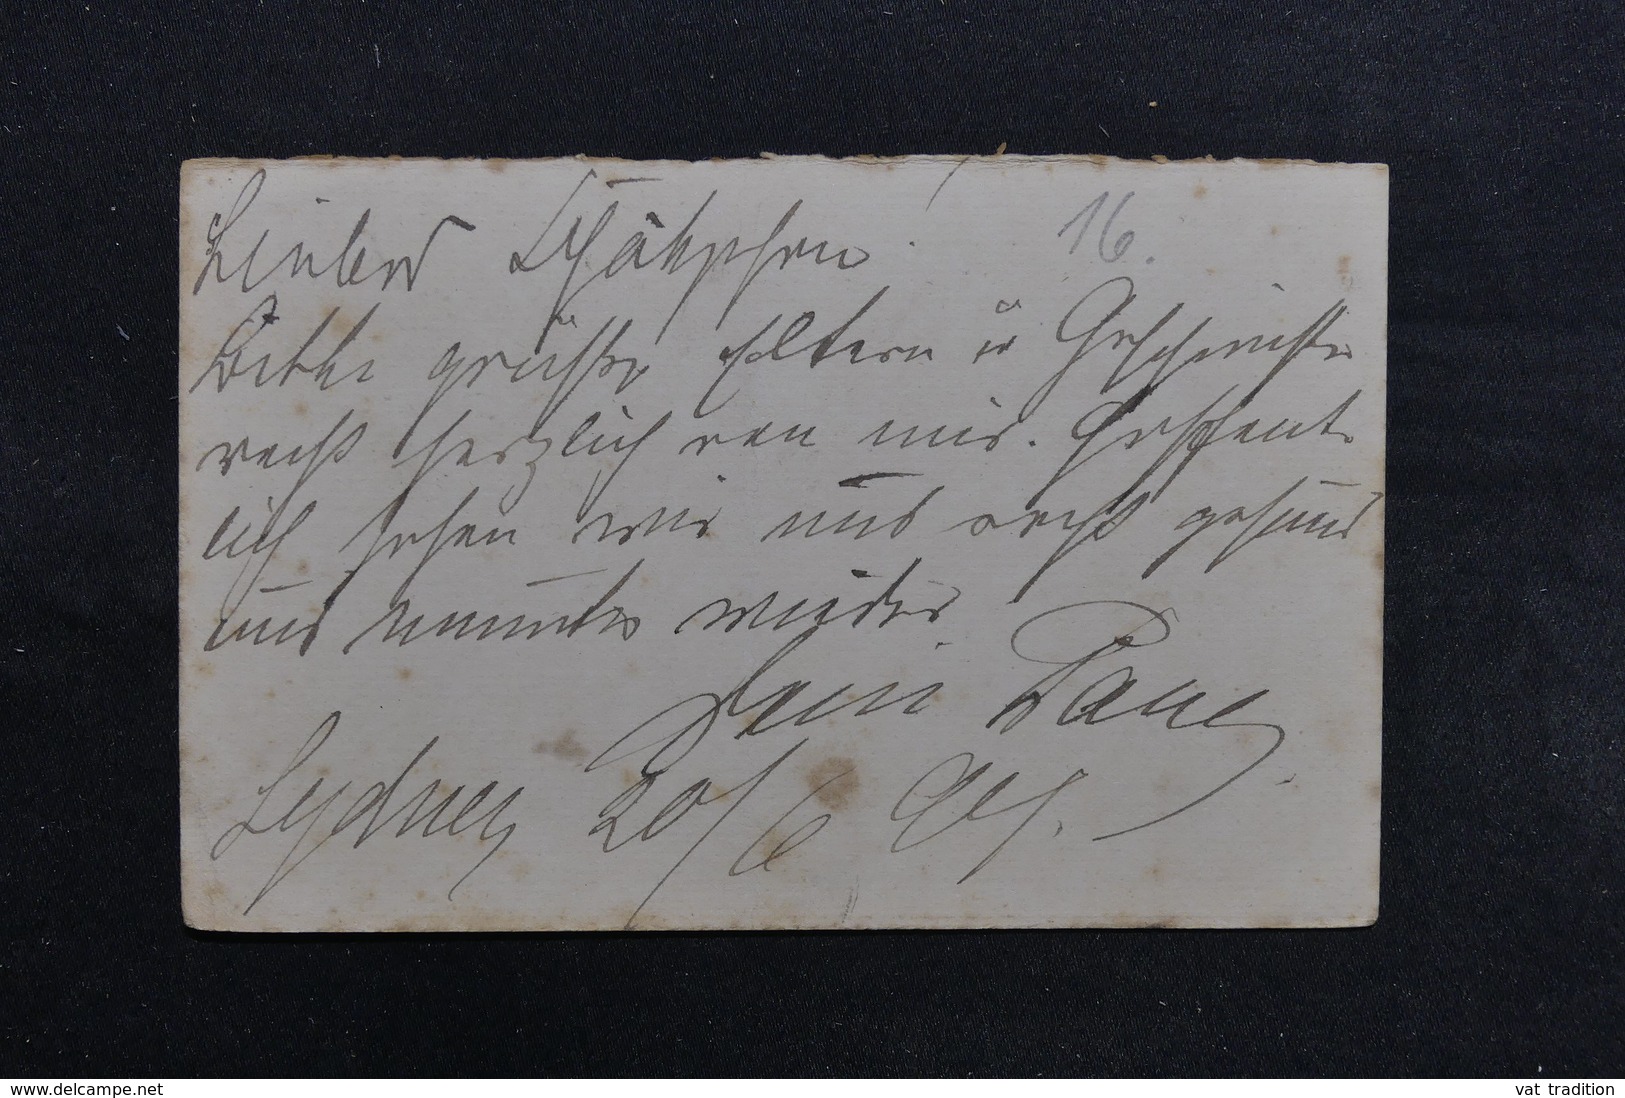 Liebes Schätzchen! 16.
Bitte grüße Eltern u Geschwister
recht herzlich von mir. Hoffent-
lich sehen wir uns recht gesund
und munter wieder.
Dein
Sydney 20/6
www.delcampe.net
vat_tradition